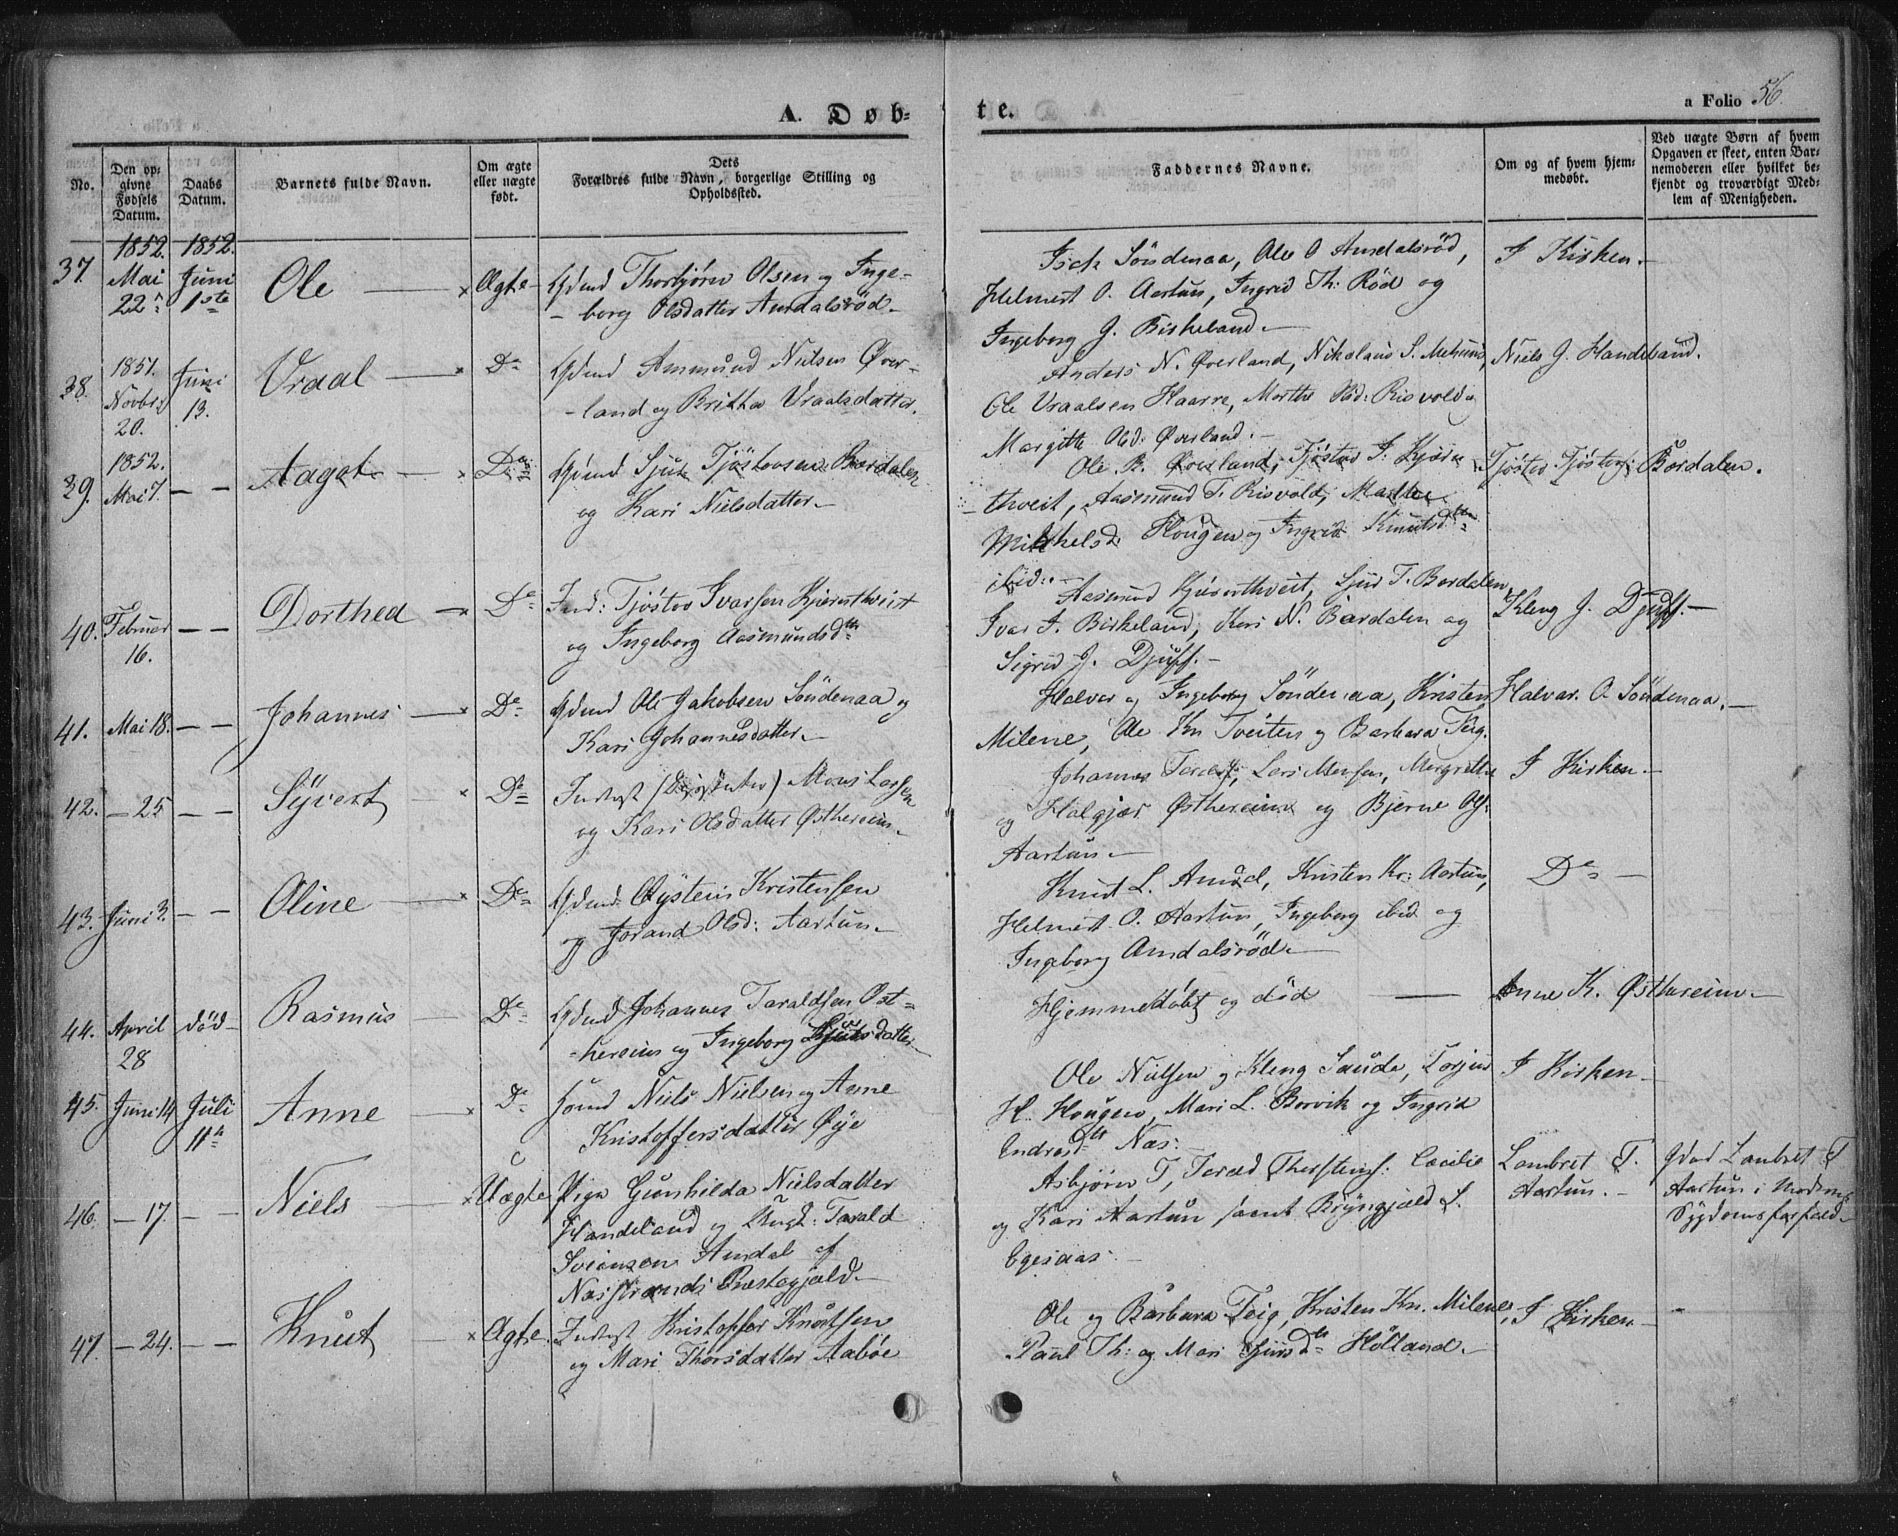 A. Døb-
te.
a Folio 56.
No.
Den op-
givne
Fødsels
Datum.
Daabs
Datum.
Barnets fulde Navn.
Om ægte
eller uægte
født.
Dets
Forældres fulde Navn, borgerlige Stilling og
Opholdssted.
Faddernes Navne.
Om og af hvem hjem-
medøbt.
Ved uægte Børn af hvem
Opgaven er skeet, enten Bar-
nemoderen eller hvilket be-
kjendt og troværdigt Med-
lem af Menigheden.
37.
1852.
Mai
22n
1852.
Juni
1ste
Ole
Ægte
Gdmd Thorbjørn Olsen og Inge-
borg Olsdatter Amdalsrød
Söndenaa, Ole O Amdalsrød,
Helmert O. Aartun, Ingrid Th: Rød og
Ingeborg J. Birkeland
I Kirken
38.
1851.
Novbr
20.
Juni
13.
Vraal
Do
Gdmd Ammund Nielsen Øver-
land og Britha Vraalsdatter.
Anders N. Øverland, Nikolaus S.
Ole Vraalsen Haarre, Marthe Risvold
Margithe Olsd. Øverland.
Niels G. Handeland.
39.
1852.
Mai 7.
Aagot
Do
Gdmd Sjur Tjöstovsen Bordalen
og Kari Nielsdatter
Ole B. Øverland, Tjöstov I. Kjörn
thveit, Aasmund T. Risvold, Marthe
Mikkelsd. Hougen og Ingrid Knutsd
ibid.
Tjöstov Tjöstovs: Bordalen.
40.
Februar
16.
Dorthea
Do
Ind: Tjöstov Ivarsen
og Ingeborg Aasmundsdtr
Aasmund Sjur T. Bordalen,
Ivar I. Birkeland, Kari N. Bordalen og
Sigrid J. Djuff.
Kleng J. Djuff.
41.
Mai 18.
Johannes
Do
Gdmd Ole Jakobsen Söndenaa og
Kari Johannesdatter
Halvor og Ingeborg Söndenaa, Kristen
Milene, Ole Kn Tveiten og Barbara Teig.
Halvor O. Söndenaa.
42.
25
Syvert
Do
Inderst Mons Larsen
og Kari Olsdatter Østhereim
Johannes Lars Monsen, Margrethe
og Østhereim og Bjerne Ols:
Aartun
I Kirken
43.
Juni 3.
Oline
Do
Gdmd Øystein Kristensen
og Jorand Olsd: Aartun
Knud L. Amdal, Kristen Kr: Aartun,
Helmert O. Aartun, Ingeborg ibid og
Ingeborg Amdalsrød
Do
44.
April
28
død
Rasmus
Do
Gdmd Johannes Taraldsen Øst-
hereim og Ingeborg
Hjemmedøbt og död
Anne K. Østhereim
45.
Juni 14
Juli
11te
Anne
Do
Niels Nielsen og Anne
Kristoffersdatter Øye
Ole Nielsen og Kleng Saude, Torjus
H. Hougen, Mari L. Borvik og Ingrid
Endresdtr Næs.
I Kirken
46.
17.
Niels
Uægte
Pige Gunhilda Nielsdatter
Handeland og Ungk: Tarald
Amdal af
Næsstrands Præstegjæld
Asbjørn T, Thorsteins: Cecilie
og Kari Aartun samt Bryngjeld S.
Egesaas
Lambret T.
Aartun.
Gdmd Lambret T
Aartun i Moderens
Sygdomsforfald
47.
24.
Knut
Ægte
Inderst Kristoffer Knutsen
og Mari Thorsdatter Aabøe
Ole og Barbara Teig, Kristen Kn. Milene,
Poul Th: og Mari Sjursdtr Hölland
I Kirken